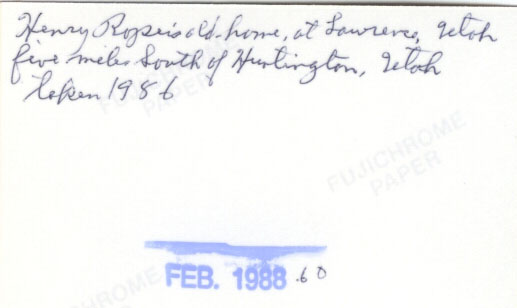 Henry Rogse's old home, at Lawrence, Utah
five miles South of Huntington, Utah
taken 1986
FUJICHROME
PAPER
FUJICHROME
PAPER
FEB. 1988 .60
CHROME
PAPER